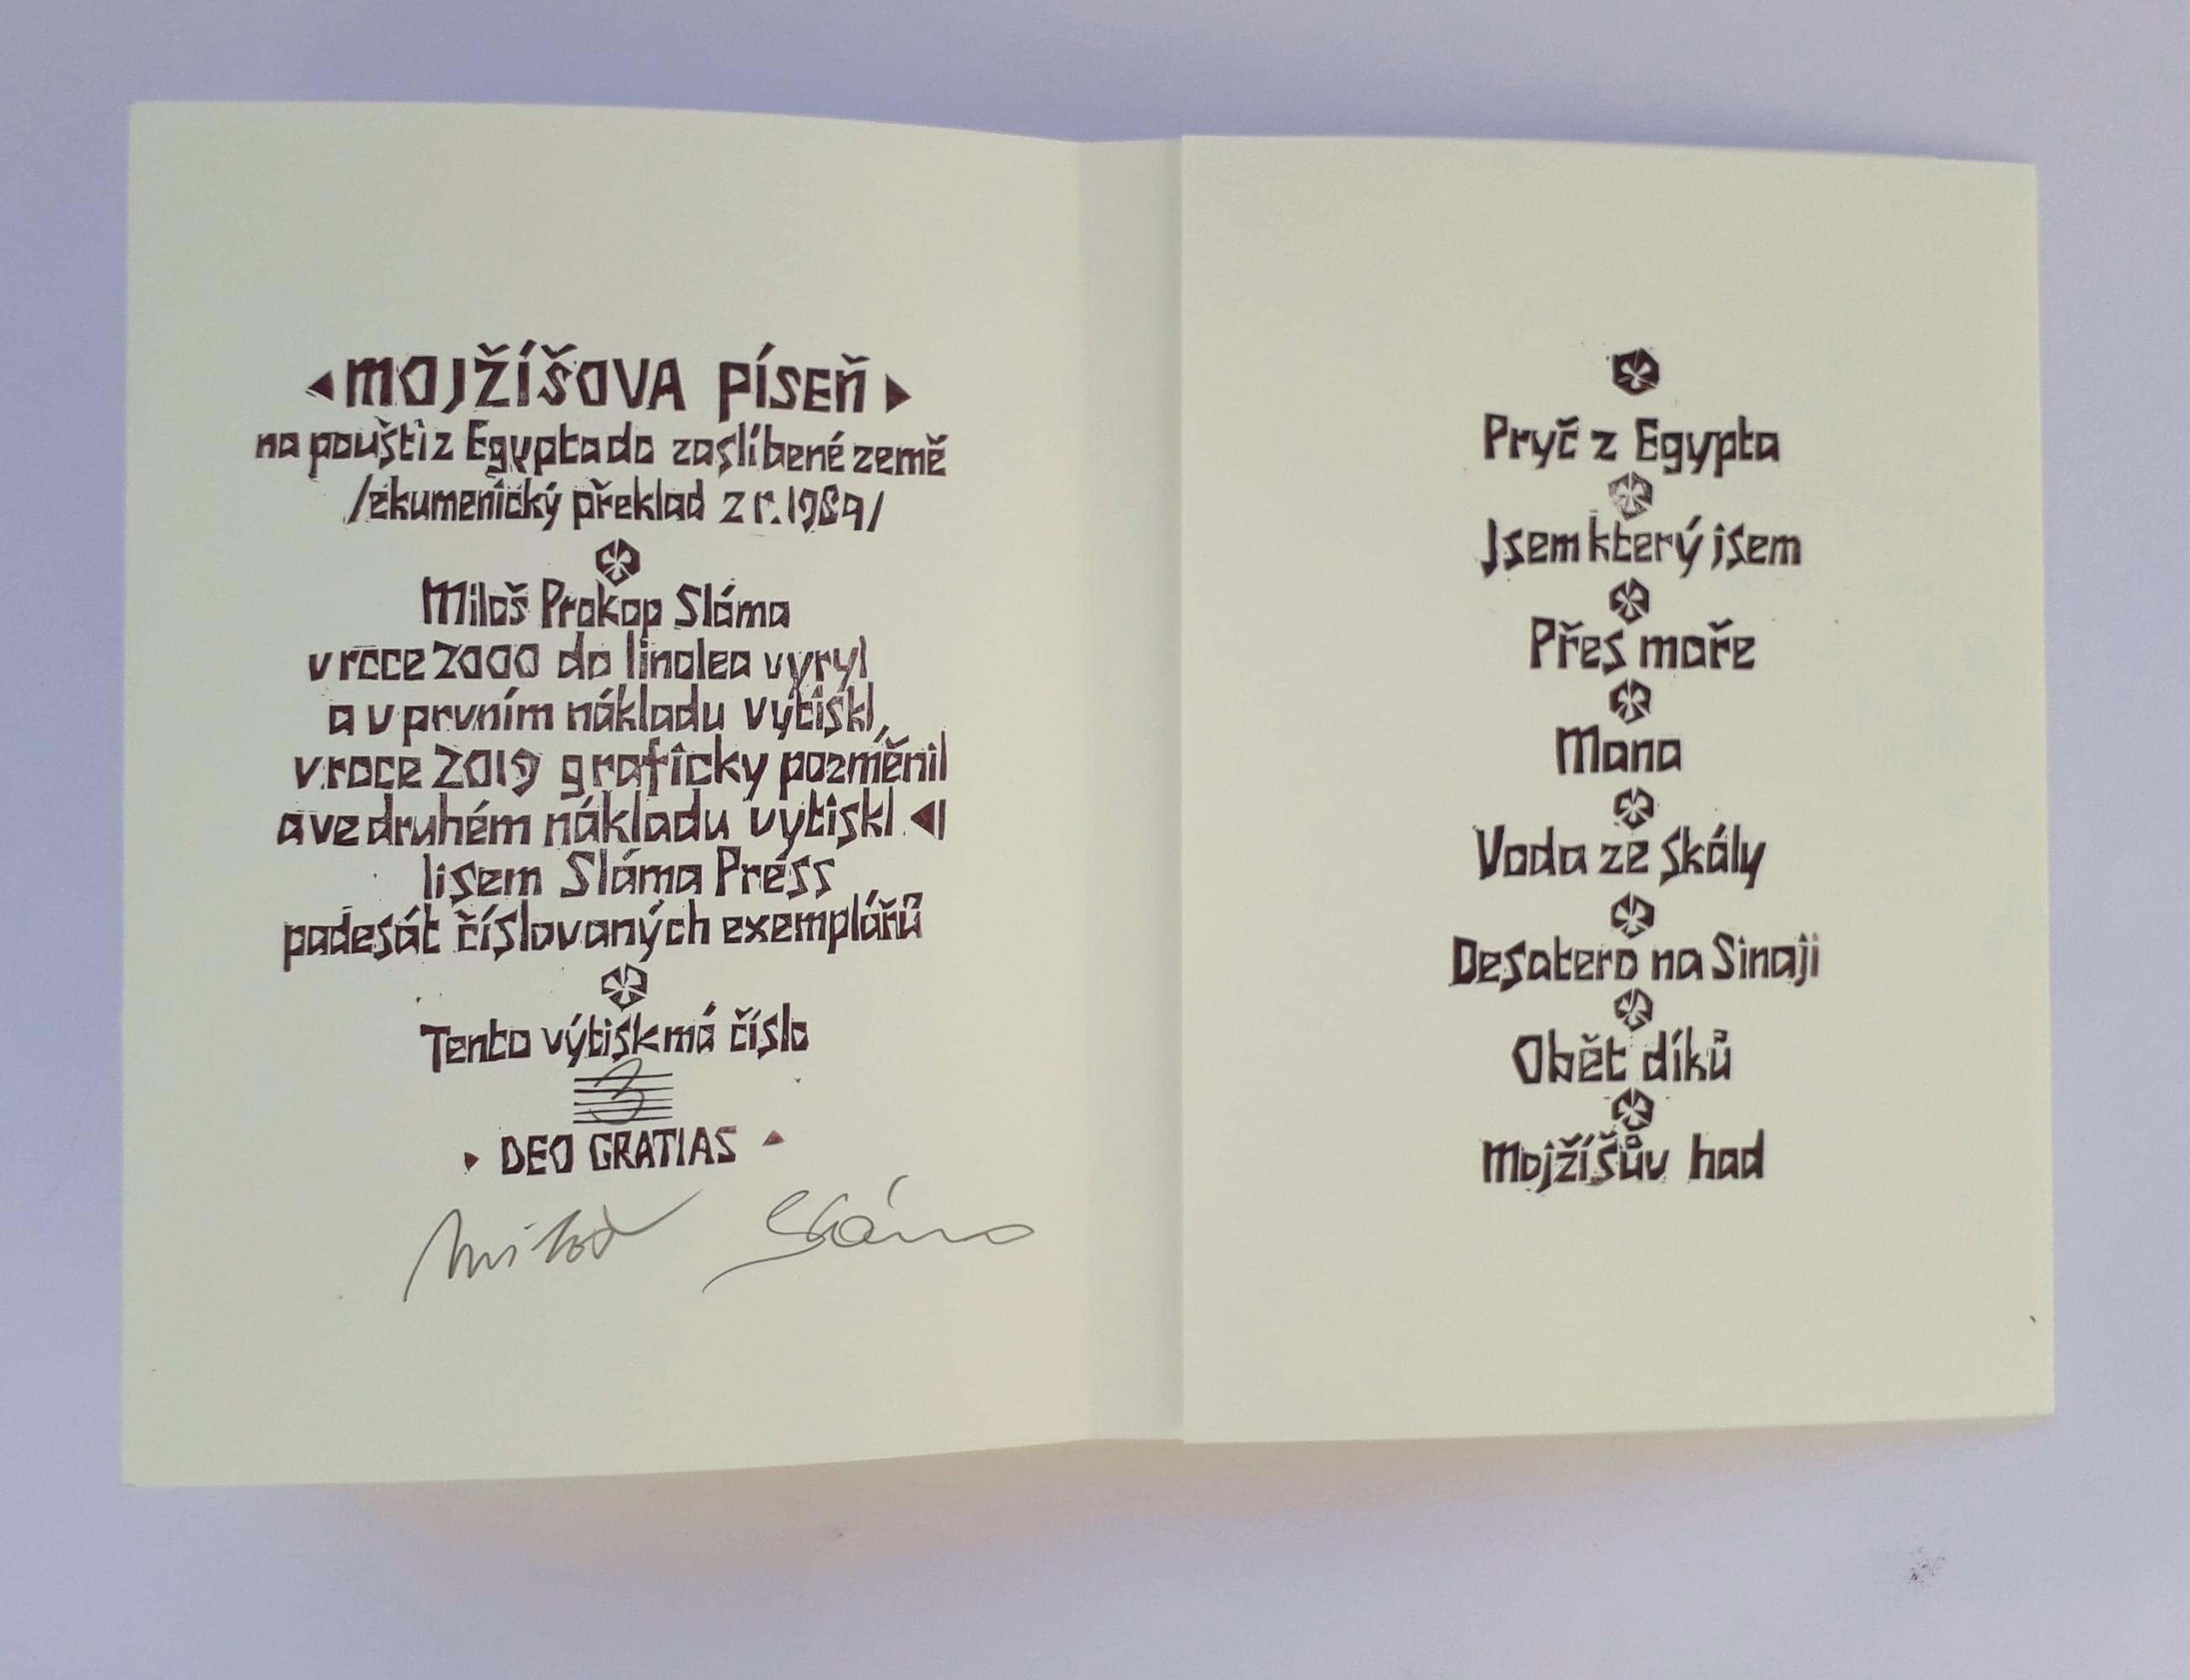 MOJŽÍŠOVA PÍSEŇ
na poušti z Egypta do zaslíbené země
/ekumenický překlad z r. 1989/
Miloš Prokop Sláma
v roce 2000 do linolea vyryl
a v prvním nákladu vytiskl,
v roce 2019 graficky pozměnil
a ve druhém nákladu vytiskl
lisem Sláma Press
padesát číslovaných exemplářů
Tento výtisk má číslo
3
DEO GRATIAS
Miloš Sláma
Pryč z Egypta
Jsem který jsem
Přes moře
Mana
Voda ze skály
Desatero na Sinaji
Oběť díků
Mojžíšův had